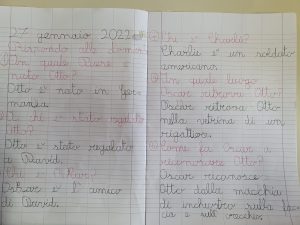 27 gennaio 2022
Rispondo alle domande
In quale Paese è
nato Otto?
Otto è nato in Ger-
mania.
A chi è stato regalato
Otto?
Otto è stato regalato
a David.
Chi è Oskar?
Oskar è l'amico
di David.
Chi è Charlie?
Charlie è un soldato
americano.
In quale luogo
Oscar ritrova Otto?
Oscar ritrova Otto
nella vetrina di un
rigattiere.
Come fa Oscar a
riconoscere Otto?
Oscar riconosce
Otto dalla macchia
di inchiostro sulla
e sull'orecchio.